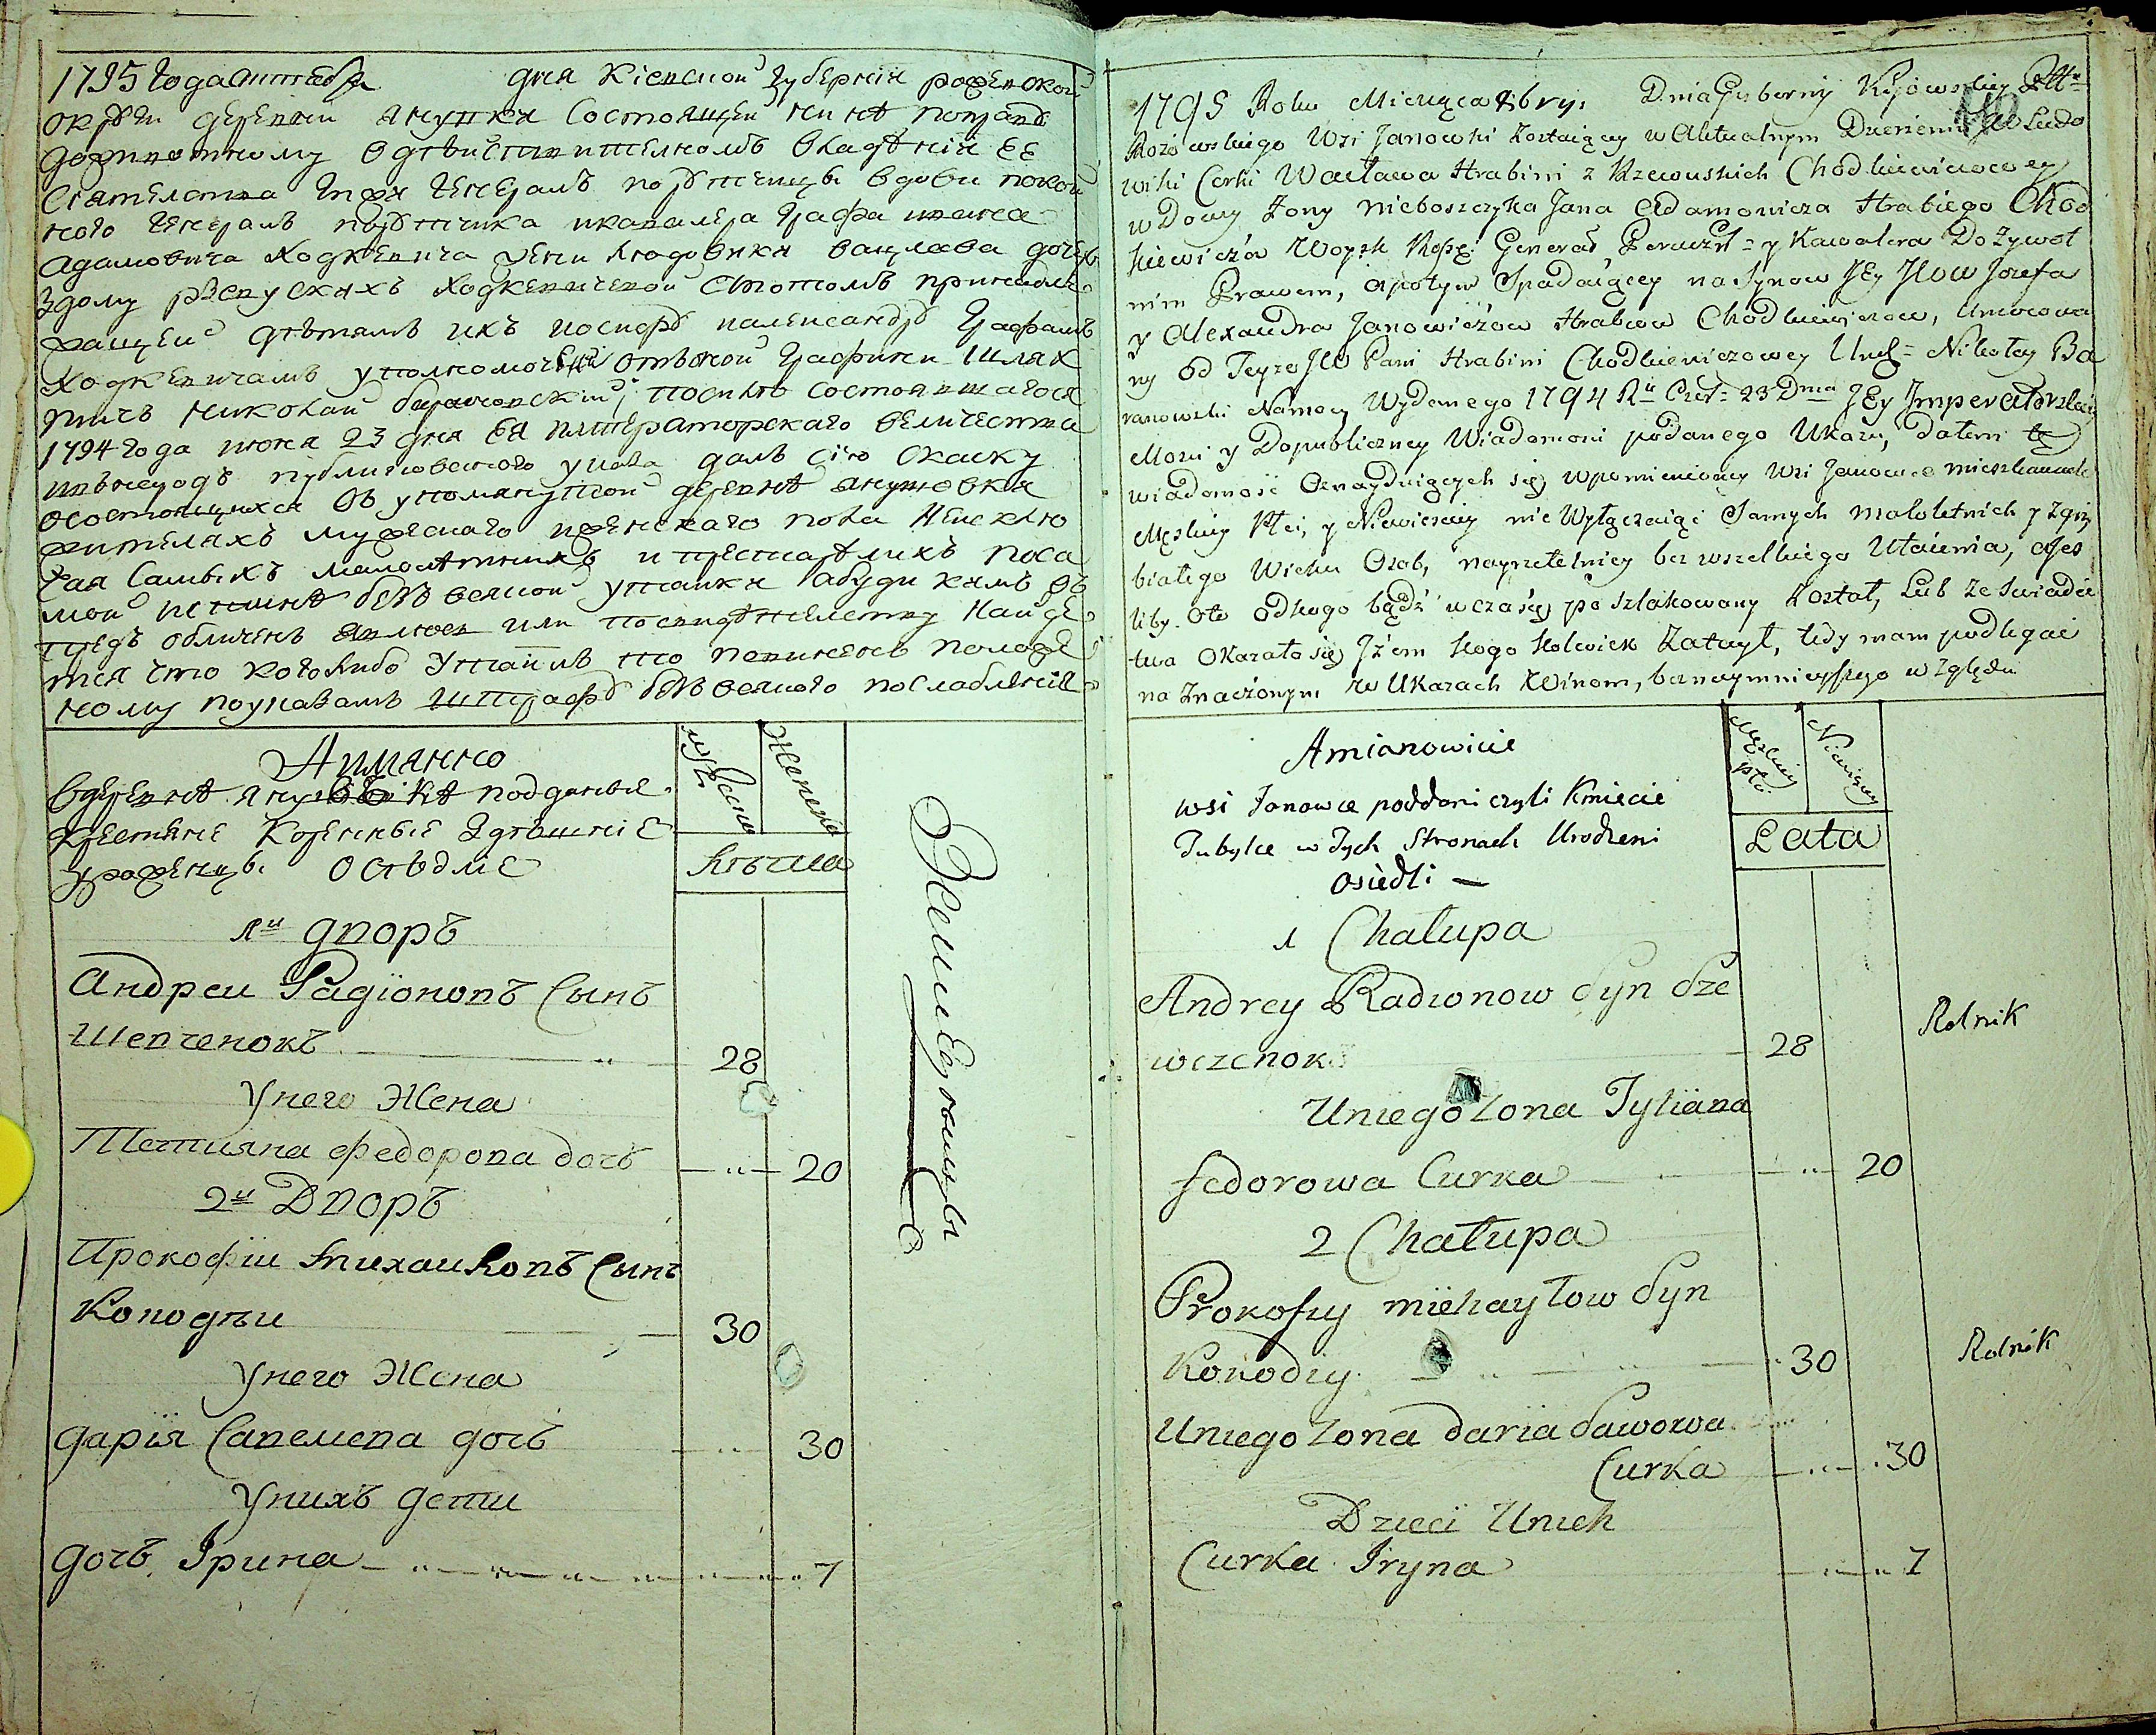 1795 года октября дня Кіевской губерніи
округи деревни Янувки состоящей ныне по праву
доживотному в действительномъ владѣніи ее
сіятелства Генералъ порутчицы вдовы покой
ного Генералъ порутчика и кавалера Графа ивана
Адамовича Ходкевича жены Людовики вацлава дочери
з дому ржевускихъ Ходкевичевой а потомъ принадле
жащей детямъ ихъ иосифу иалександру Графамъ
Ходкевичамъ уполномоченный отъ оной Графини Шлях
тичъ николай барановский по силѣ состоявшагося
1794 года июня 23 дня Ея императорскаго величества
и въ народъ публикованного указа далъ сію скаску
о состоящихъ въ упомянутой деревне
жителяхъ мужескаго и женскаго пола неисклю
чая самыхъ малолетнихъ и престарелихъ по са
мой истинне безъ всякой утайки а буди кимъ въ
предъ обличенъ или по свидетелству найде
тся что кого либо утаилъ то повиненъ положе
ному по указамъ штрафу безъ всякого послабленія
Аимянно
в деревне подданые
крестяне коренные здешніе
урожденцы оседлие
мужеска
женска
лѣта
1й дворъ
Андрей Радіоновъ сынъ
Шевченокъ 28
Унего Жена
Тетияна Федорова дочъ 20
2й Дворъ
Прокофій михайловъ сынъ
Коновдѣй 30
Унего Жена
Дарія Савелиева дочъ 30
Унихъ дети
дочъ Ірина 7
Земледельцы
1795 Roku Miesiąca 8bry: Dnia Guberny Kijowskiey
Rożowskiego Wsi Janowki zostaiącey w Aktualnym Dzierżeniu JW Ludo
wiki Corki Wacława Hrabini z Rzewuskich Chodkiewiczowey
wdowy Zony nieboszczyka Jana Adamowicza Hrabiego Chod
kiewicza Woysk Generał Poruczn= y Kawalera Dożywot
nim Prawem, a potym Spadaiącey na Synow JEy JWow Jozefa
y Alexandra Janowiczow Hrabiow Chodkiewiczow, Umocowa
ny od Teyże JW Pani Hrabini Chodkiewiczowey Urodz= Nikołay Ba
ranowski Na mocy Wydanego 1794 Ru Czer= 23 Dnia JEy Imperatorskiey
Mości y Do publiczney Wiadomości podanego Ukazu, dałem tę
wiadomość o znayduiących się w pomienioney Wsi Janowce mieszkancach
Męskiey Płci, y Niewieściey nie Wyłączaiąc Samych małoletnich y zgrzy
białego Wieku Osob, nayrzetelniey bez wszelkiego Utaienia, a jes
liby oto odkogo bądź wczasię poszlakowany został, Lub ze Swiadec
twa okazało się Jżem kogo kolwiek Zataył, tedy mam podlegać
naznaczonym w Ukazach Winom, beznaymnieyszego względu
Amianowicie
wsi Janowce poddani czyli Kmiecie
Tubylce w Tych Stronach Urodzeni
osiedli —
Męskiey płci
Niewieściey
Lata
1 Chałupa
Andrey Radionow Syn Sze
wczenok 28 Rolnik
Uniego Zona Tytiana
fedorowa Curka 20
2 Chałupa
Prokofiy michayłow Syn
Konodiy 30 Rolnik
Uniego Zona daria Sawowa
Curka 30
Dzieci Unich
Curka Iryna 7